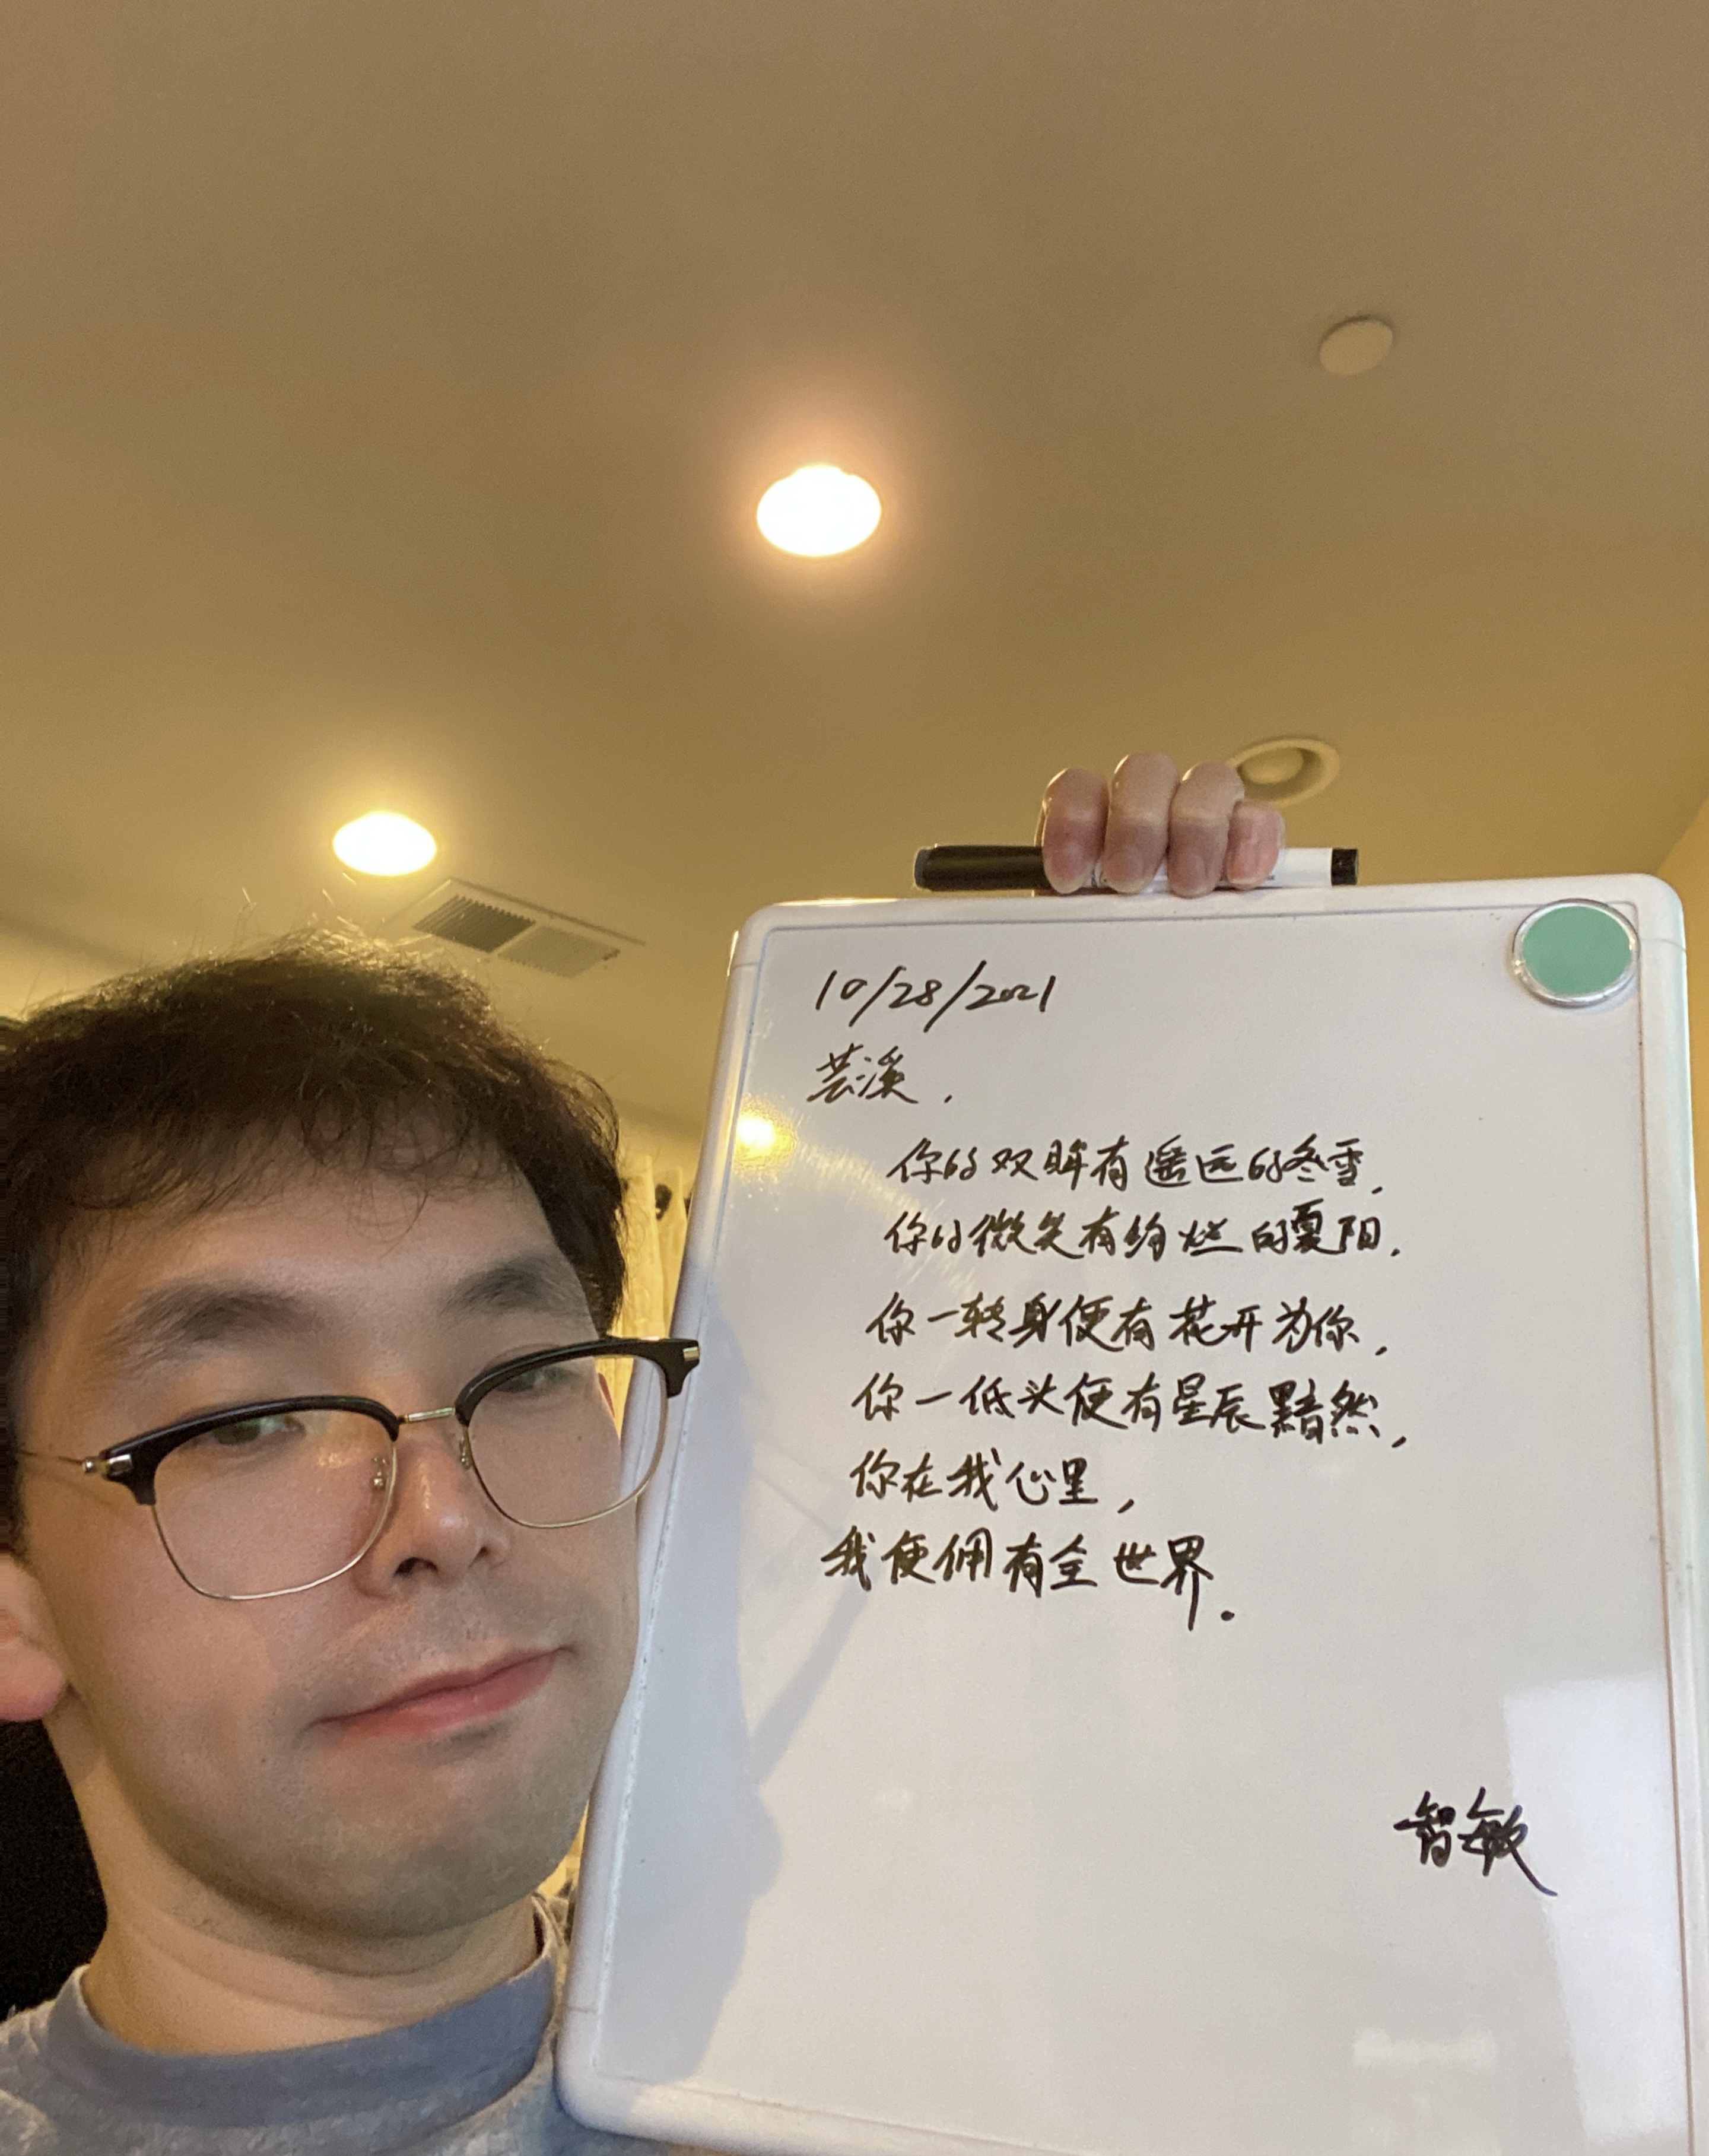 10/28/2021
芸溪,
你的双眸有遥远的冬雪,
你的微笑有绚烂的夏阳,
你一转身便有花开为你,
你一低头便有星辰黯然,
你在我心里,
我便佣有全世界.
智敏